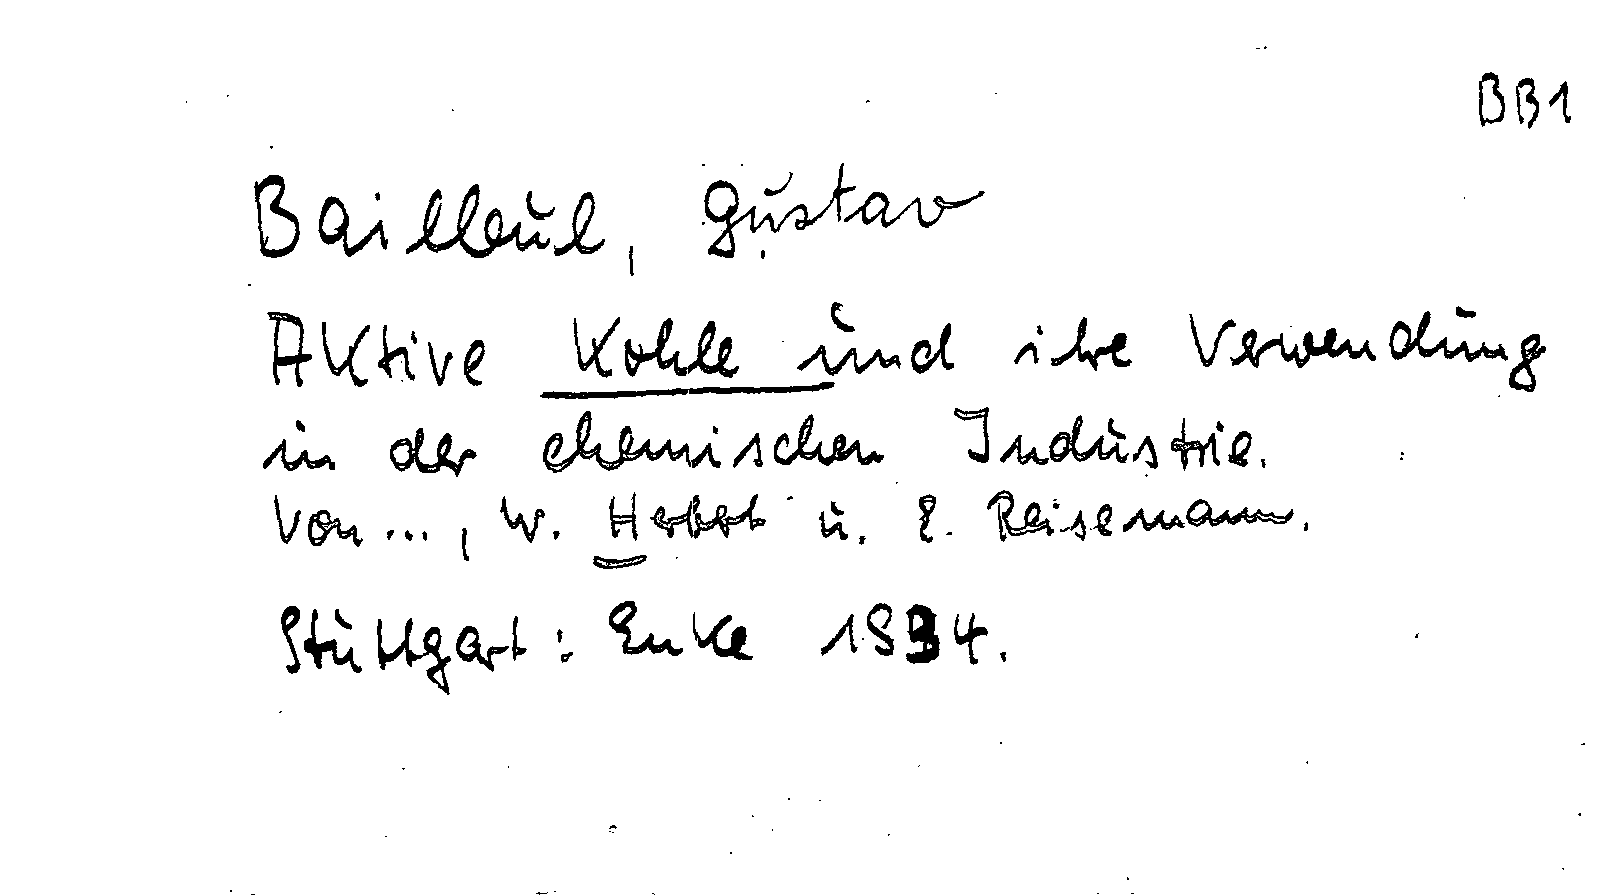 BB1
Bailleul, Gustav
Aktive Kohle und ihre Verwendung
in der chemischen Industrie.
Von..., W. Herbst u. E. Reisemann.
Stuttgart: Enke 1934.